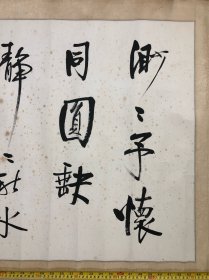 渺〻予懷
同圓缺
靜〻水